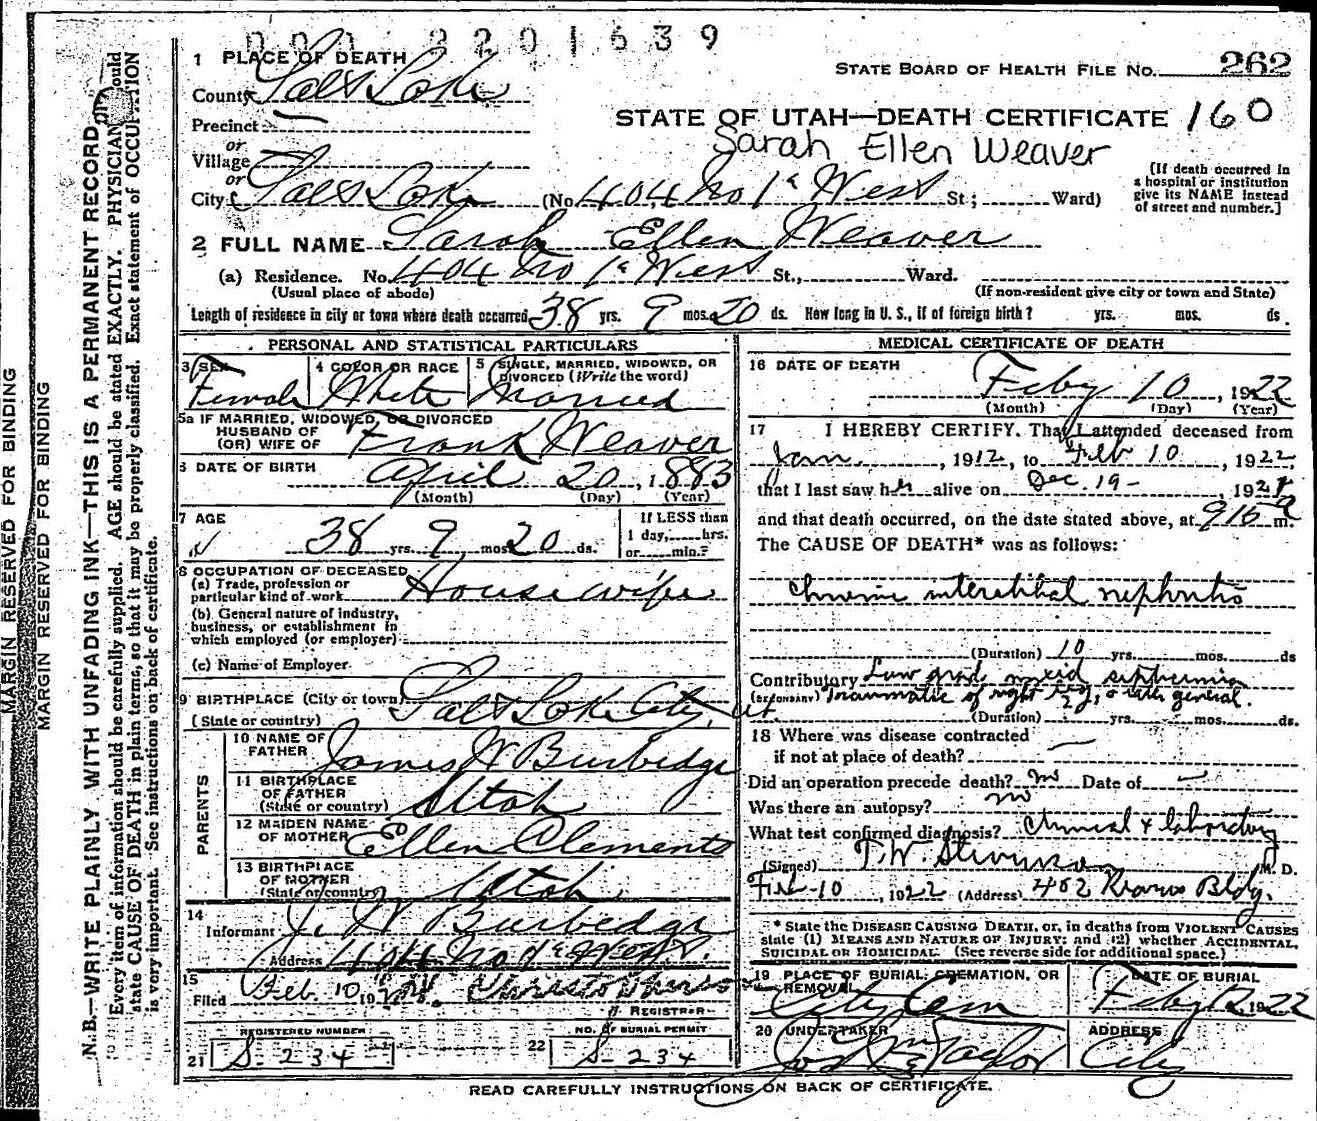 001 2201639
1 PLACE OF DEATH
STATE BOARD OF HEALTH FILE NO. 262
County Salt Lake
STATE OF UTAH—DEATH CERTIFICATE 160
Precinct
Sarah Ellen Weaver
or
Village
or
City Salt Lake (No. 404 No 1st West St; Ward)
[If death occurred in
a hospital or institution
give its NAME instead
of street and number.]
2 FULL NAME Sarah Ellen Weaver
(a) Residence. No. 404 No 1st West St., Ward.
(Usual place of abode) (If non-resident give city or town and State)
Length of residence in city or town where death occurred 38 yrs. 9 mos. 20 ds. How long in U. S., if of foreign birth? yrs. mos. ds.
PERSONAL AND STATISTICAL PARTICULARS
3 SEX
Female
4 COLOR OR RACE
White
5 SINGLE, MARRIED, WIDOWED, OR
DIVORCED (Write the word)
Married
5a IF MARRIED, WIDOWED, OR DIVORCED
HUSBAND OF
(OR) WIFE OF Frank Weaver
6 DATE OF BIRTH April 20, 1883
(Month) (Day) (Year)
7 AGE
38 yrs. 9 mos. 20 ds.
If LESS than
1 day, hrs.
or min.?
8 OCCUPATION OF DECEASED
(a) Trade, profession or
particular kind of work Housewife
(b) General nature of industry,
business, or establishment in
which employed (or employer)
(c) Name of Employer
9 BIRTHPLACE (City or town) Salt Lake City, Ut
(State or country)
PARENTS
10 NAME OF
FATHER James W Burbedge
11 BIRTHPLACE
OF FATHER
(State or country) Utah
12 MAIDEN NAME
OF MOTHER Ellen Clements
13 BIRTHPLACE
OF MOTHER
(State or country) Utah
14
Informant J. W Burbedge
Address 404 No 1st West.
15
Filed Feb. 10 19
REGISTRAR
REGISTERED NUMBER
21 S-234
NO. OF BURIAL PERMIT
22 S-234
MEDICAL CERTIFICATE OF DEATH
16 DATE OF DEATH
Feby 10, 1922
(Month) (Day) (Year)
17 I HEREBY CERTIFY. That I attended deceased from
Jan., 1912, to Feb 10, 1922,
that I last saw her alive on Dec. 19-1921
and that death occurred, on the date stated above, at 915 a m.
The CAUSE OF DEATH* was as follows:
Chronic interstitial nephritis
(Duration) 10 yrs. mos. ds
Contributory Low grade
(SECONDARY) of right & general.
(Duration) yrs. mos. ds.
18 Where was disease contracted
if not at place of death?
Did an operation precede death? no Date of
Was there an autopsy? no
What test confirmed diagnosis? Clinical & laboratory
(Signed) T. W. Stevenson M. D.
Feb-10, 1922 (Address) 402 Kearns Bldg.
* State the DISEASE CAUSING DEATH, or, in deaths from VIOLENT CAUSES
state (1) MEANS AND NATURE OF INJURY; and (2) whether ACCIDENTAL,
SUICIDAL OR HOMICIDAL. (See reverse side for additional space.)
19 PLACE OF BURIAL, CREMATION, OR
REMOVAL
City Cem
DATE OF BURIAL
Feby 12, 1922
20 UNDERTAKER
Jos Wm Taylor
ADDRESS
City
READ CAREFULLY INSTRUCTIONS ON BACK OF CERTIFICATE.
MARGIN RESERVED FOR BINDING
MARGIN RESERVED FOR BINDING
N. B.—WRITE PLAINLY WITH UNFADING INK—THIS IS A PERMANENT RECORD
Every item of information should be carefully supplied. AGE should be stated EXACTLY. PHYSICIANS should
state CAUSE OF DEATH in plain terms, so that it may be properly classified. Exact statement of OCCUPATION
is very important. See instructions on back of certificate.